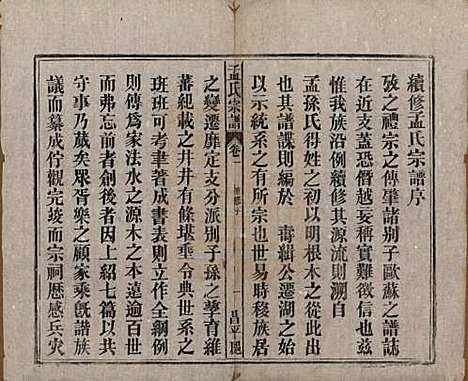 續修孟氏宗譜序
攷之禮宗之傳肇諸別子歐蘇之譜誌
在近支蓋恐僭越妄稱實難徵信也茲
惟我族沿例續修其源流則溯自
孟孫氏得姓之初以明根木之從此出
其譜諜則編於 壽緝公遷湖之始
以示統系之有所宗也世易時移族居
孟氏宗譜 卷一
一 昌平郡
之變遷靡定支分派別子孫之孳育維
蕃紀載之井井有條堪垂令典世系之
班班可考聿著成書表則立作全綱例
則傳為家法水之源木之本逾百世
而弗忘前者創後者因上紹七篇以共
守事乃蕆矣眾胥樂之顧家乘既諧族
議而纂成佇觀完竣而宗祠歷感兵灾